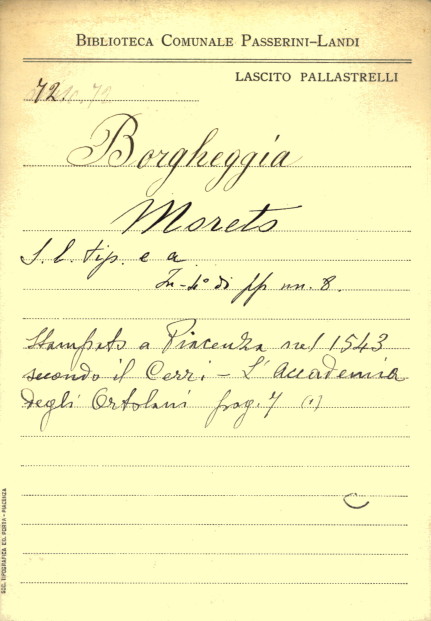 BIBLIOTECA COMUNALE PASSERINI-LANDI
LASCITO PALLASTRELLI
72
Borgheggia
Moreto
S. l. tip. e a
In-4° di pp nn. 8.
Stampato a Piacenza nel 1543
secondo il Cerri - L'Accademia
degli Ortolani pag. 7 (1)
SOC. TIPOGRAFICA ED. PORTA - PIACENZA